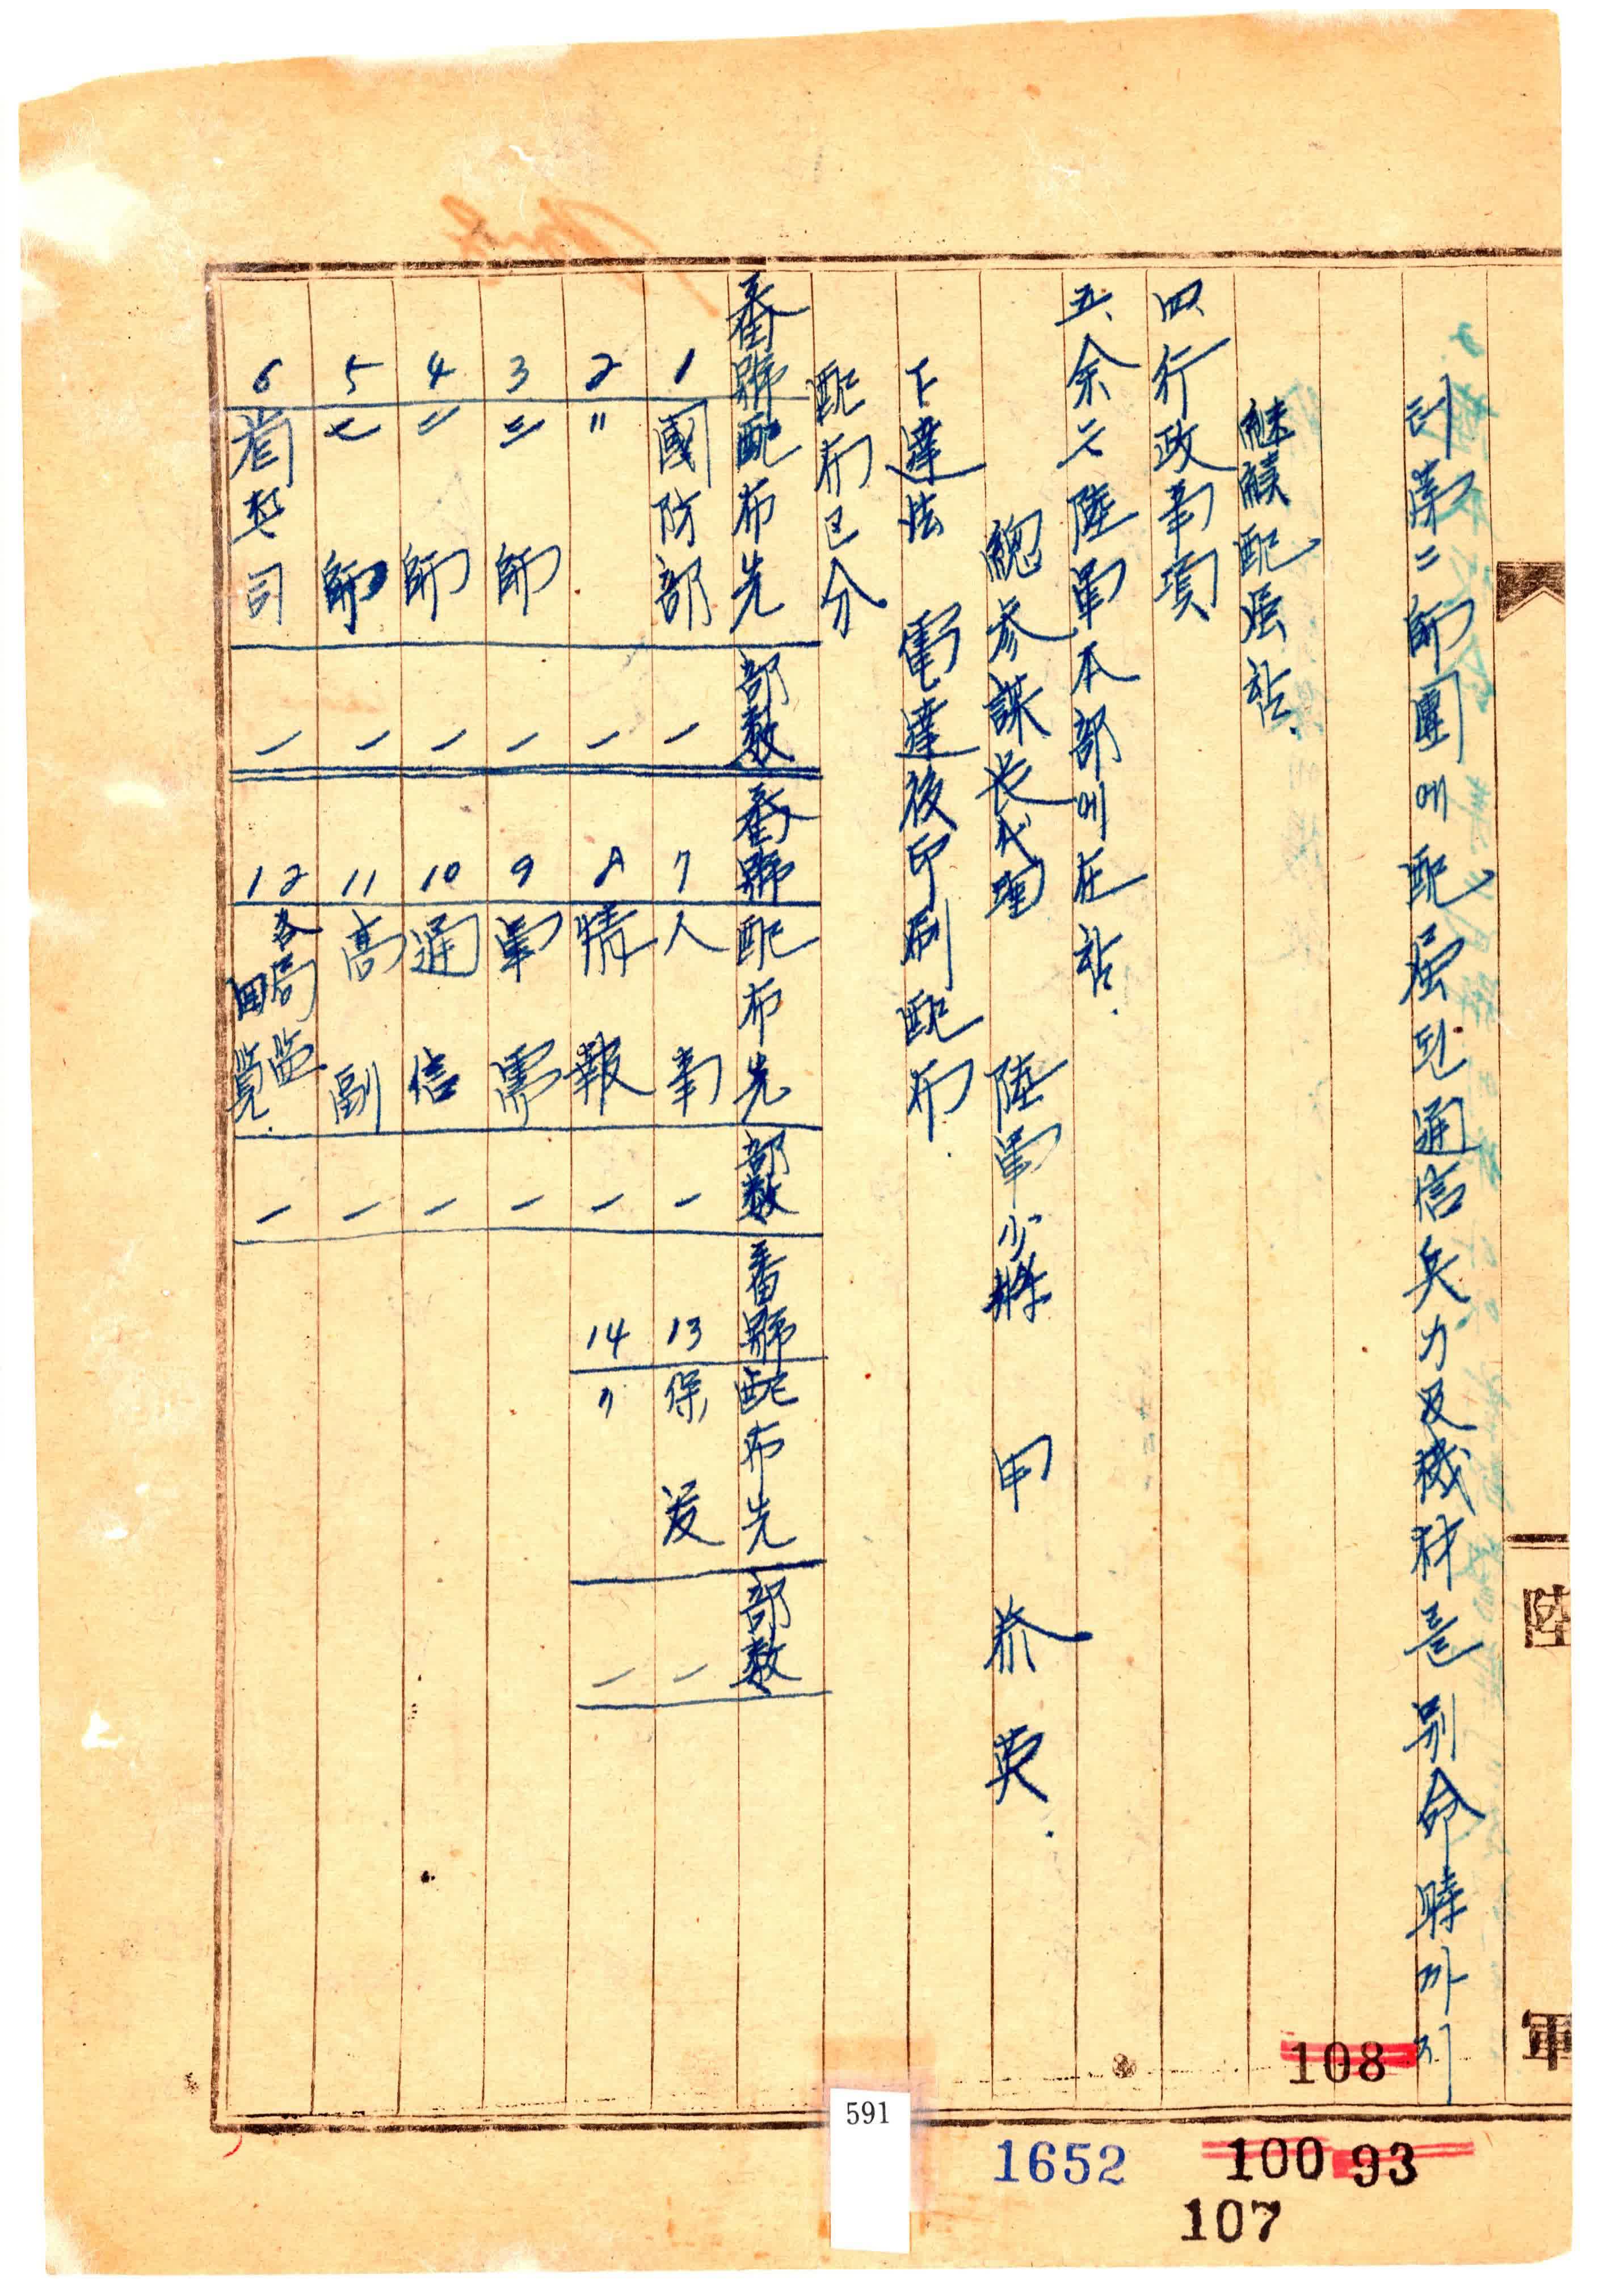 리 第二師團에 配屬된 通信兵力 及 機材를 別命 時까지
継續 配屬함.
四、行政事項
五、余는 陸軍本部에 在함.
總参謀长代理 陸軍少將 申泰英.
下達法 電達後印刷配布.
配布区分
番號 配布先 部数 番號 配布先 部数 番號 配布先 部数
1 國防部 一 7 人事 一 13 保 发 一
2 〃 一 8 情報 一 14 〃 一
3 二師 一 9 軍需 一
4 二師 一 10 通信 一
5 七師 一 11 高副 一
6 司 一 12 各局 一
陸
軍
108
591
1652
100
93
107